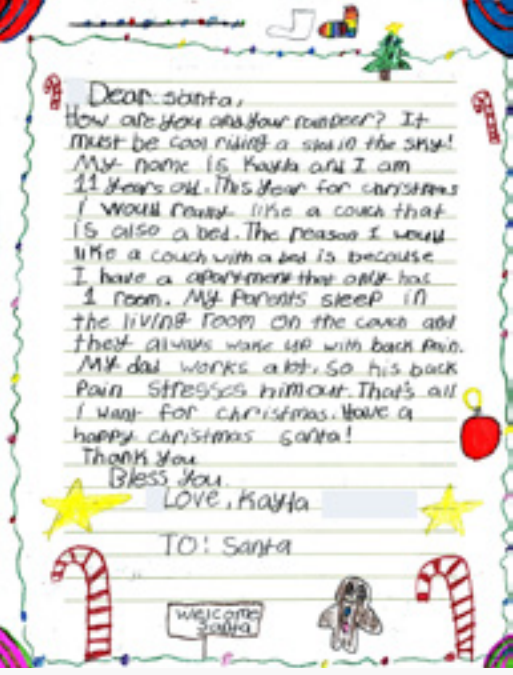 Dear santa,
How are you and your raindeer? It
must be cool riding a sled in the sky!
My name is Kayla and I am
11 years old. This year for christmas
I would really like a couch that
is also a bed. The reason I would
like a couch with a bed is because
I have a apartment that only has
1 room. My parents sleep in
the living room on the couch and
they always wake up with back pain.
My dad works a lot. So his back
pain stresses him out. That's all
I want for christmas. Have a
happy christmas santa!
Thank you
Bless you.
Love, Kayla
TO: Santa
welcome
Santa